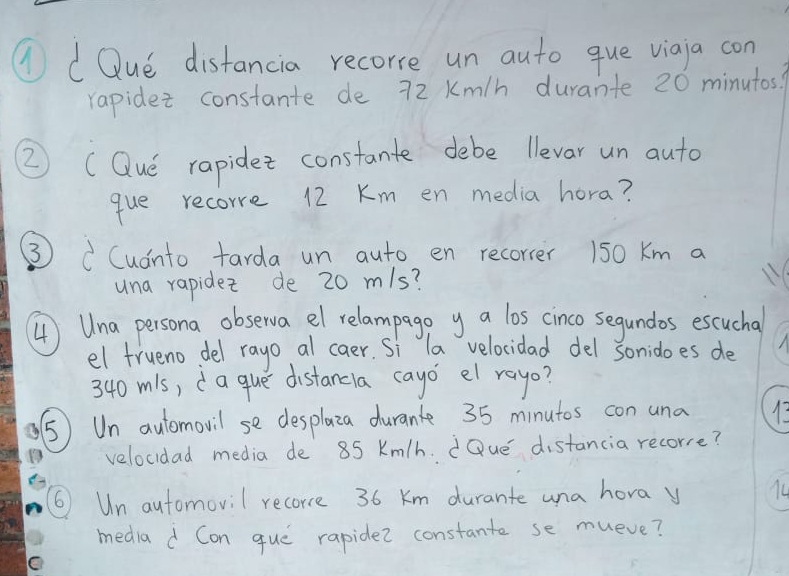 1 ¿Qué distancia recorre un auto que viaja con
rapidez constante de 72 Km/h durante 20 minutos?
2 ¿Qué rapidez constante debe llevar un auto
que recorre 12 Km en media hora?
3 ¿Cuánto tarda un auto en recorrer 150 Km a
una rapidez de 20 m/s?
4 Una persona observa el relampago y a los cinco segundos escucha
el trueno del rayo al caer. Si la velocidad del sonido es de
340 m/s, ¿a qué distancia cayó el rayo?
5 Un automovil se desplaza durante 35 minutos con una
velocidad media de 85 Km/h. ¿Qué distancia recorre?
6 Un automovil recorre 36 Km durante una hora y
media ¿Con qué rapidez constante se mueve?
13
14